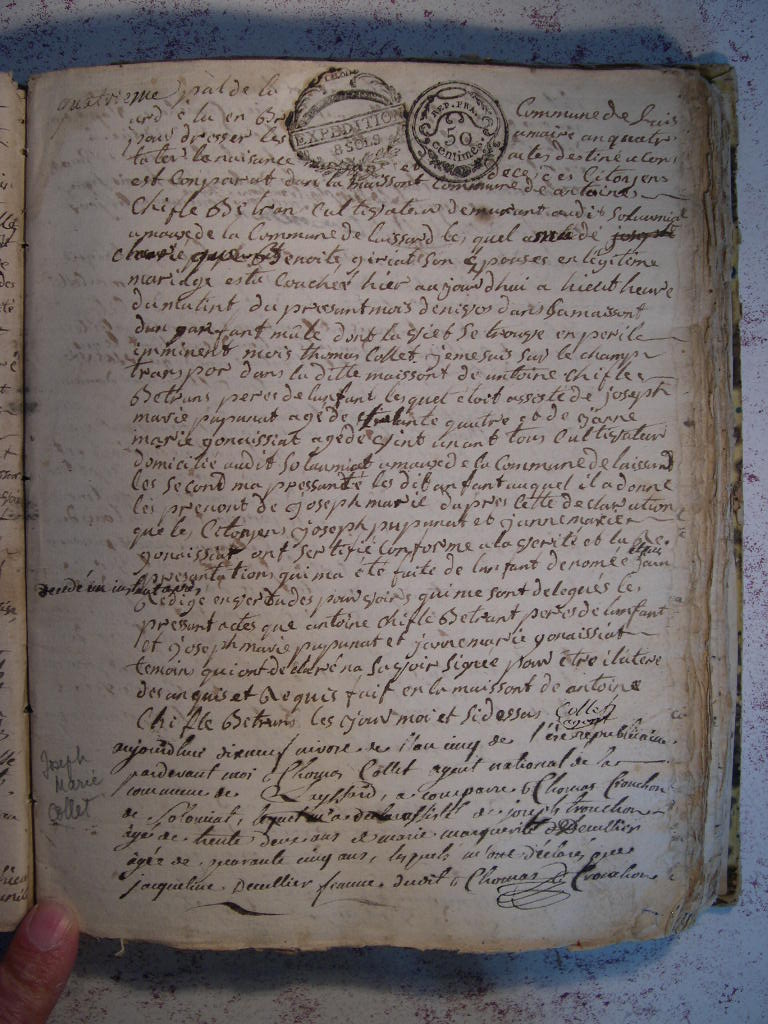 quatrieme pal de la
ard élu en
EXPEDITION
8 SOLS
REP. FRA.
50
centimes
Commune de Leis
pour dresser les
amaire an quatr
tater le naisance
actes destiné a cons
et deces es Citoyens
est Conparut dans la maissont Commune de antoine
Chifle Betran Cultivateur demurant audit Solaumiat
amaux de la Commune de laissard le quel de joseph
marie que Benoite son épouses en légitime
mariage este Couchér hier aujourdhui a hieut heure
du matint du pressant mois denivos dans sa maissont
dun garsant mâle dont la vie Se trouve en peril
imminent mois thomas Collet jemesuis sur le champ
transpor dans la ditte maissont de antoine Chifle
Betrans peres de lanfant lesquel étoit assisté de joseph
marie pupunat agé de trante quatre et de janne
marie gonaissiat agé de vint un ant tous Cultivateur
domicilié audit Solaumiat amaux de la Commune de laissard
les Second ma pressanté les dit anfant auquel il a donné
les prenont de joseph marie dapres cette declaration
que les Citoyens joseph pupunat et janne marie
gonaissiat ont Sertifié Conforme a la verité et la Re
presantations qui ma été faite de lanfant denomée
Redige envertu des pouvoirs qui me sont delegués le
pressant actes que antoine Chifle Betrant peres de lanfant
et joseph marie pupunat et janne marie gonaissiat
temoin qui ont declaré na Savoir Signée pour être
des anquis et Requis fait en la maissont de antoine
Chifle Betrans les jour moi et Sidessus Collet
agent
aujourdhui dixneuf nivose de l'an cinq de l'ére républicaine
pardevant moi Thomas Collet agent national de la
commune de Leyssard, a comparu Thomas Trouchon
de Solomiat, lequel de joseph trouchon
âgé de trente deux ans et marie marguerite Decullier
âgée de quarante cinq ans, lesquels m'ont déclaré que
jacqueline Decullier femme dudit Thomas Trouchon
Joseph
Marie
Collet